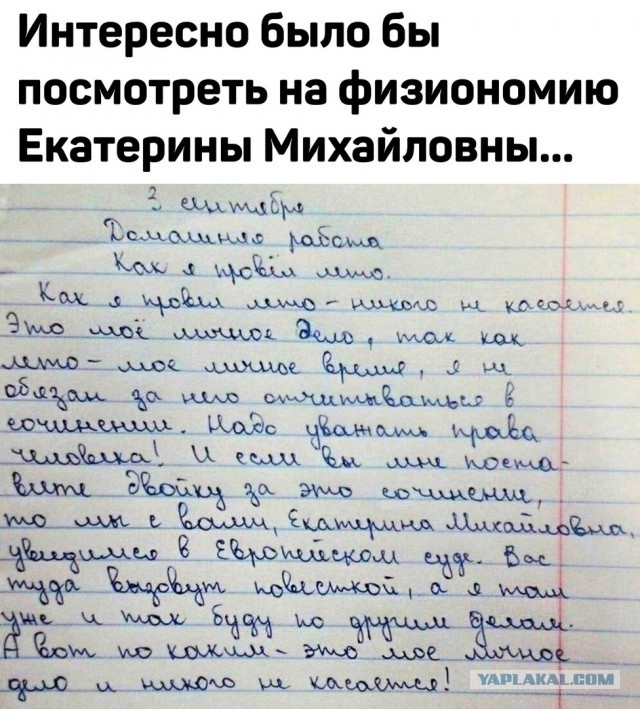 Интересно было бы
посмотреть на физиономию
Екатерины Михайловны...
3 сентября
Домашняя работа
Как я провёл лето.
Как я провел лето - никого не касается.
Это моё личное дело, так как
лето - мое личное время, я не
обязан за него отчитываться в
сочинении. Надо уважать права
человека! И если вы мне поста-
вите двойку за это сочинение,
то мы с вами, Екатерина Михайловна,
увидимся в Европейском суде. Вас
туда вызовут повесткой, а я там
уже и так буду по другим делам.
А вот по каким - это мое личное
дело и никого не касается!
YAPLAKAL.COM